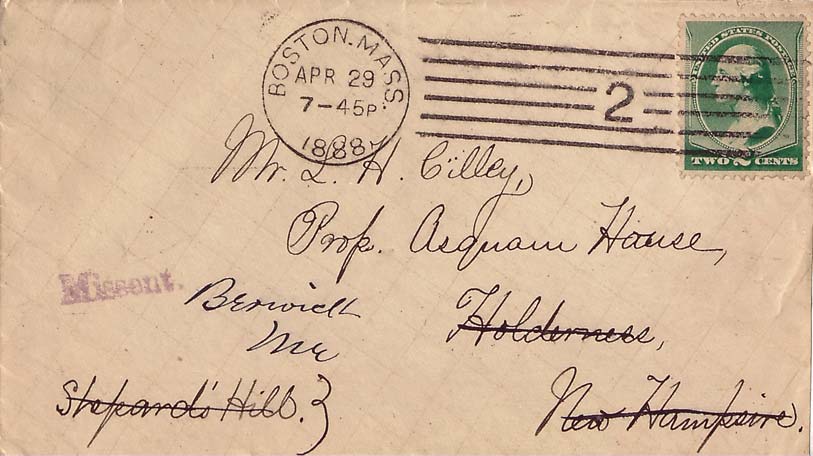 BOSTON.MASS.
APR 29
7-45P
1888
2
UNITED STATES POSTAGE
TWO 2 CENTS
Mr. L. H. Cilley,
Prop. Asquam House,
Missent.
Berwick
Me
Holderness,
Stepard's Hill.
New Hampsire.